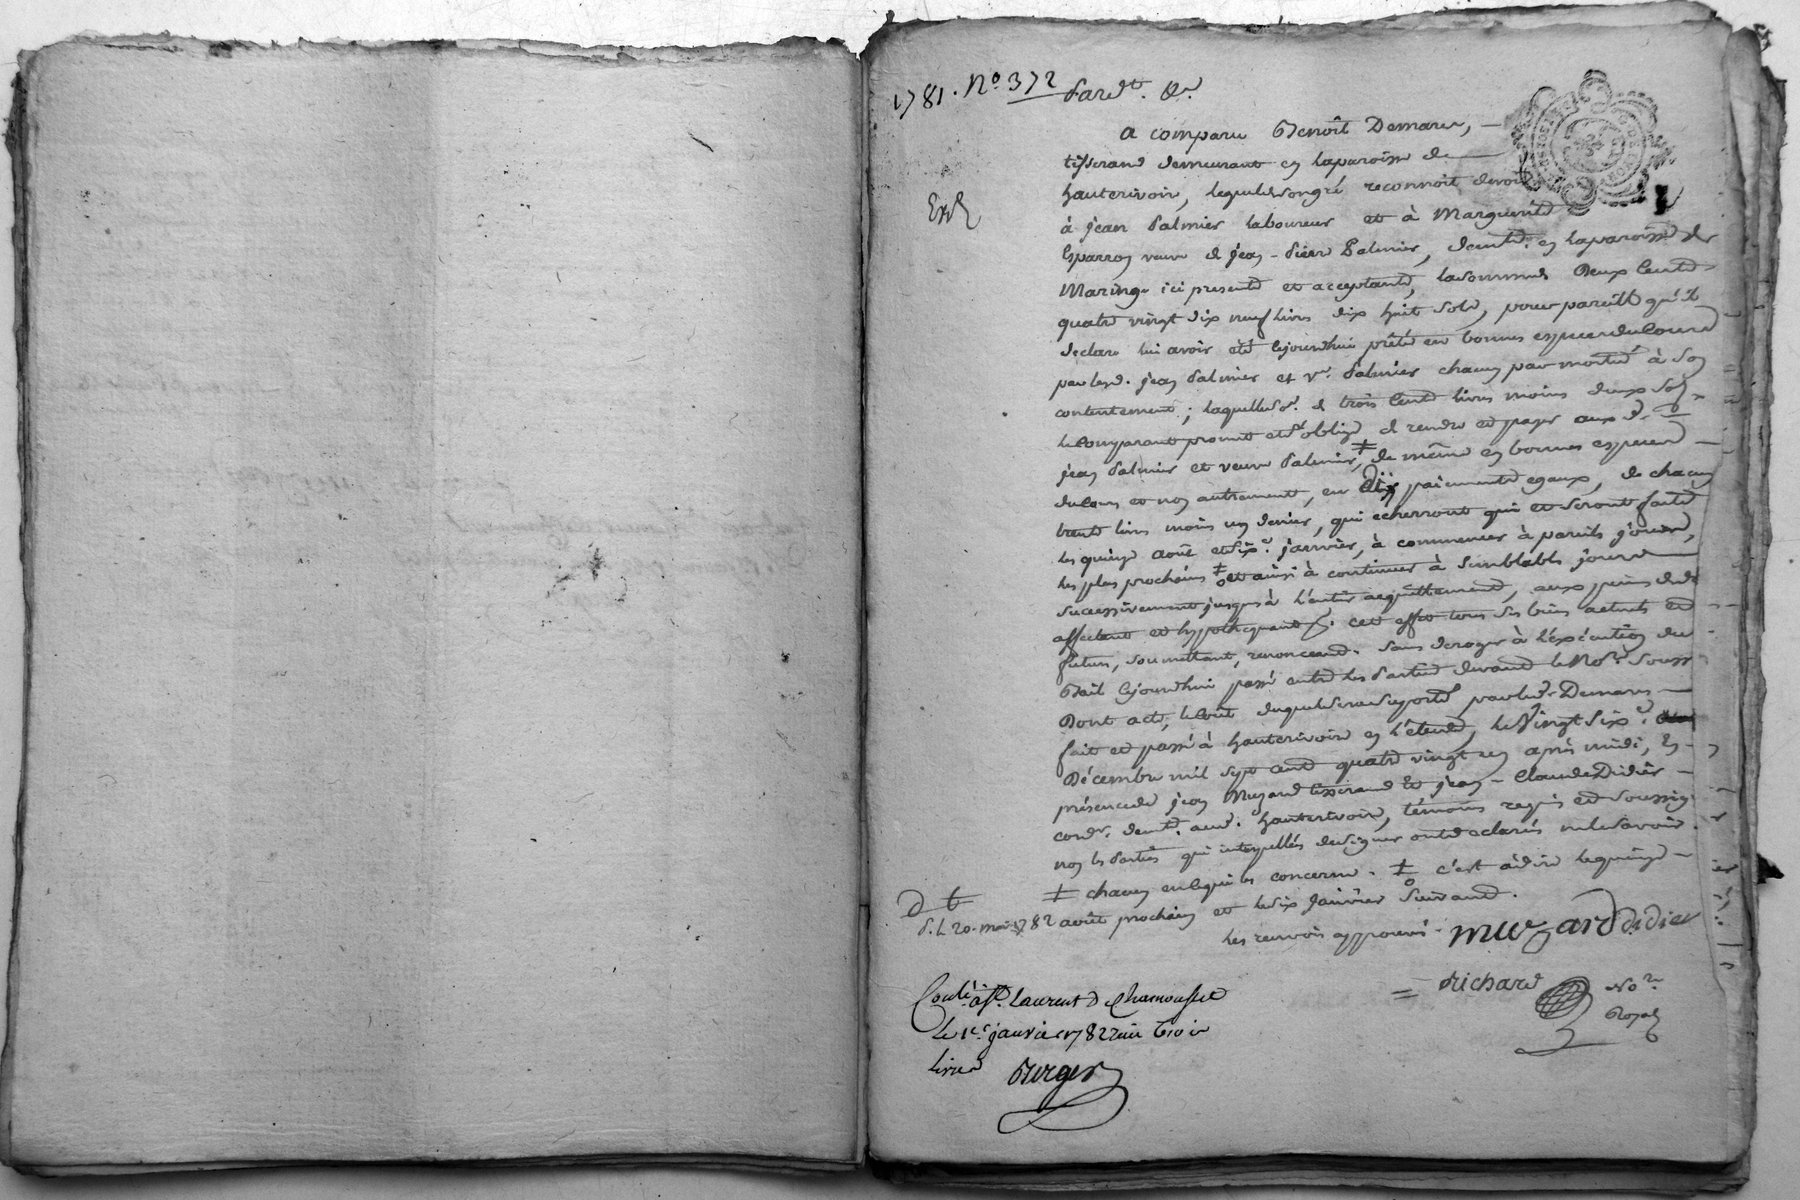 1781. No. 372 Pardt. &a.
a comparu Benoît Demare,
tisserand demeurant en la paroisse de
hauterivoire, lequel de son gré reconnoit devoir
Exp
à jean Palmier laboureur et à Marguerite
Esparron veuve de jean-Pierre Palmier, demts. en la paroisse de
Maringe ici presents et acceptants, la somme de Deux Cents
quatre vingt dix neuf livres dix huit sols, pour pareille qu'il
declare lui avoir été cejourdhui prêtée en bonnes especes du Cours
par lesd. jean Palmier et ve. Palmier chacun par moitié à son
contentement; laquelle se. de trois Cents livres moins deux sols
le Comparant promet et s'oblige de rendre et payer aux d.
jean Palmier et veuve Palmier ‡, de même en bonnes especes
du Cours et non autrement, en dix paiements egaux, de chacun
trente livres moins un denier, qui echerront qui et seront faits
les quinze août et six janvier, à commencer à pareils jours,
les plus prochains ‡o et ainsi à continuer à semblables jours
successivement jusques à l'entier acquittement, aux peines de dt.
affectant et hypothequant à cet effet tous ses biens actuels et
futurs, soumettant, renonceant. sans deroger à l'éxécution du
Bail cejourdhui passé entre les Parties devant le Nore. Souss
Dont acte, le Coût duquel sera suporté par led. Demare
fait et passé à hauterivoire en l'étude, le Vingt Six
Décembre mil sept cent quatre vingt un après midi, En
présence de jean Muzard tisserand et jean-Claude Didier
cordr. demts. aud. hauterivoire, témoins requis et soussignés
non les Parties qui interpellés de signer ont declarés ne le savoir.
‡ chacun en ce qui les concerne. ‡o c'est à dire le quinze
d t
d. l. 20. mai 1782
août prochain et le six Janvier Suivant.
les renvois approuvés. muzard didier
= Richard Nore. Royal
Conlé. à St. Laurent de Chamousset
le 1er. janvier 1782 reçu trois
livres Berger